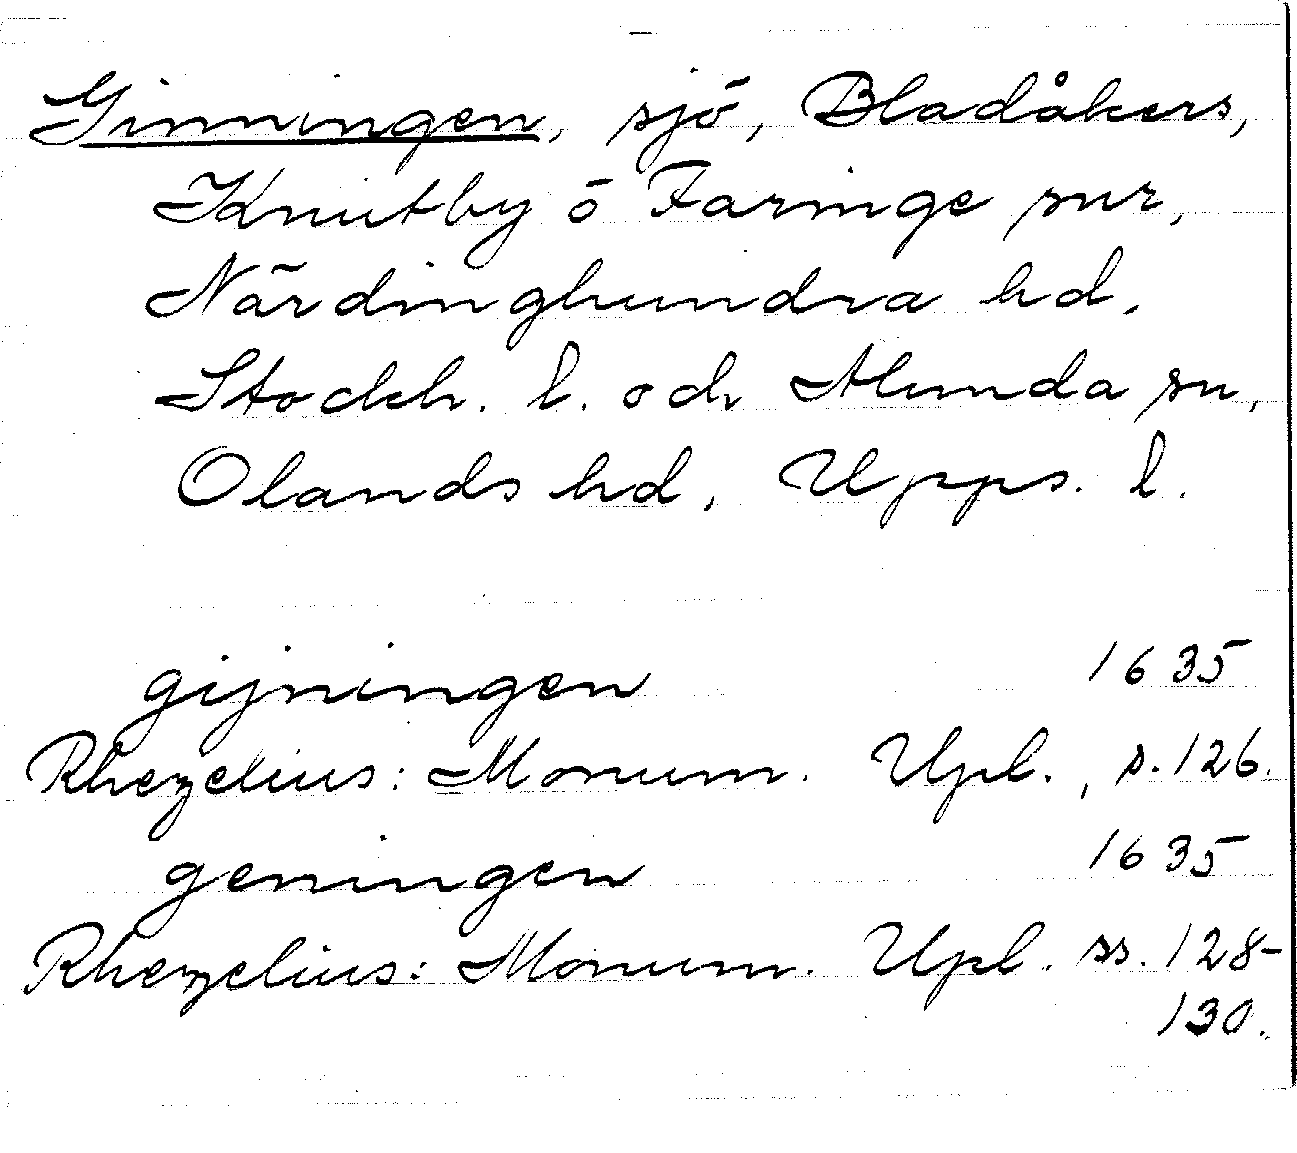 Ginningen, sjö, Bladåkers,
Knutby o Faringe snr,
Närdinghundra hd,
Stockh. l. och Alunda sn,
Olands hd, Upps. l.
gijningen 1635
Rhezelius: Monum. Upl., s. 126.
geningen 1635
Rhezelius: Monum. Upl. ss. 128-
130.